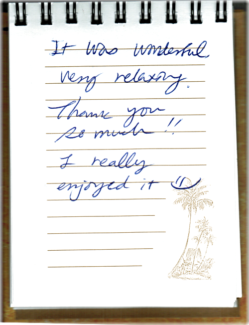 It was wonderful
very relaxing.
Thank you
so much!!
I really
enjoyed it